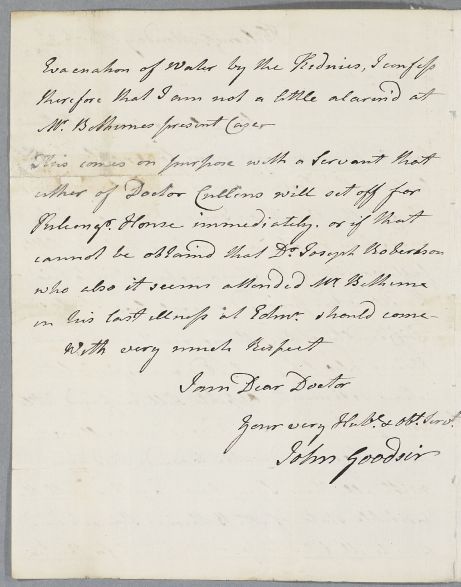 Evacuation of Water by the Kidnies, I confess
therefore that I am not a little alarm'd at
Mr. Bethunes present Case
This comes on purpose with a Servant that
either of Doctor Cullens will set off for
House immediately. or if that
cannot be obtaind that Dr. Joseph Robertson
who also it seems attended Mr. Bethune
in his last illness at Edinr. should come
With very much Respect
I am Dear Doctor
Your very Hube. & Obt. Servt.
John Goodsir